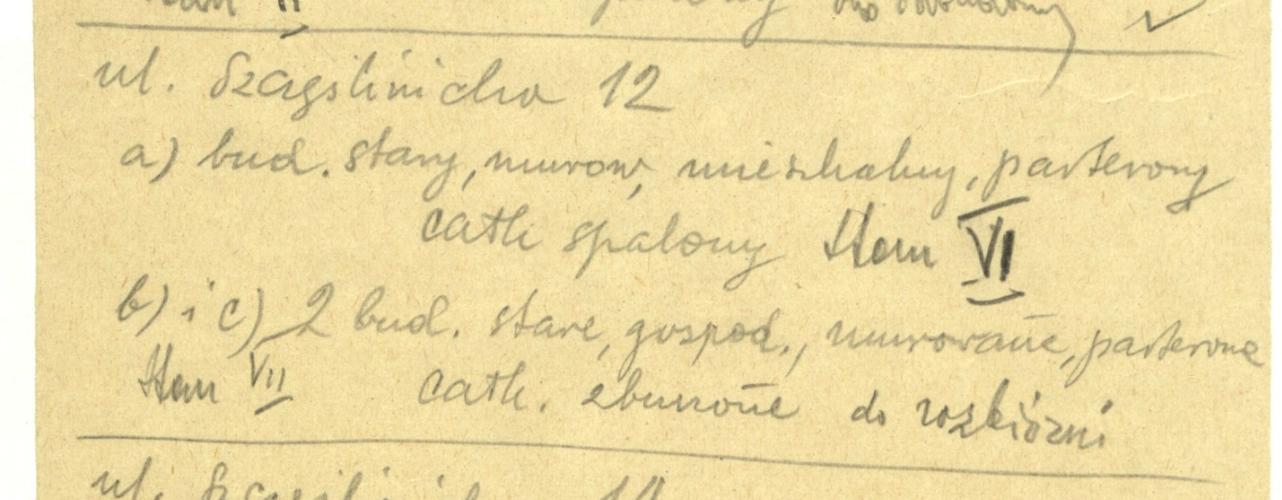 ul. Szczęśliwicka 12
a) bud. stary, murow, mieszkalny, parterowy
całk spalony Stan VI
b) i c) 2 bud. stare, gospod., murowane, parterowe
Stan VII całk. zburzone do rozbiórki
ul.